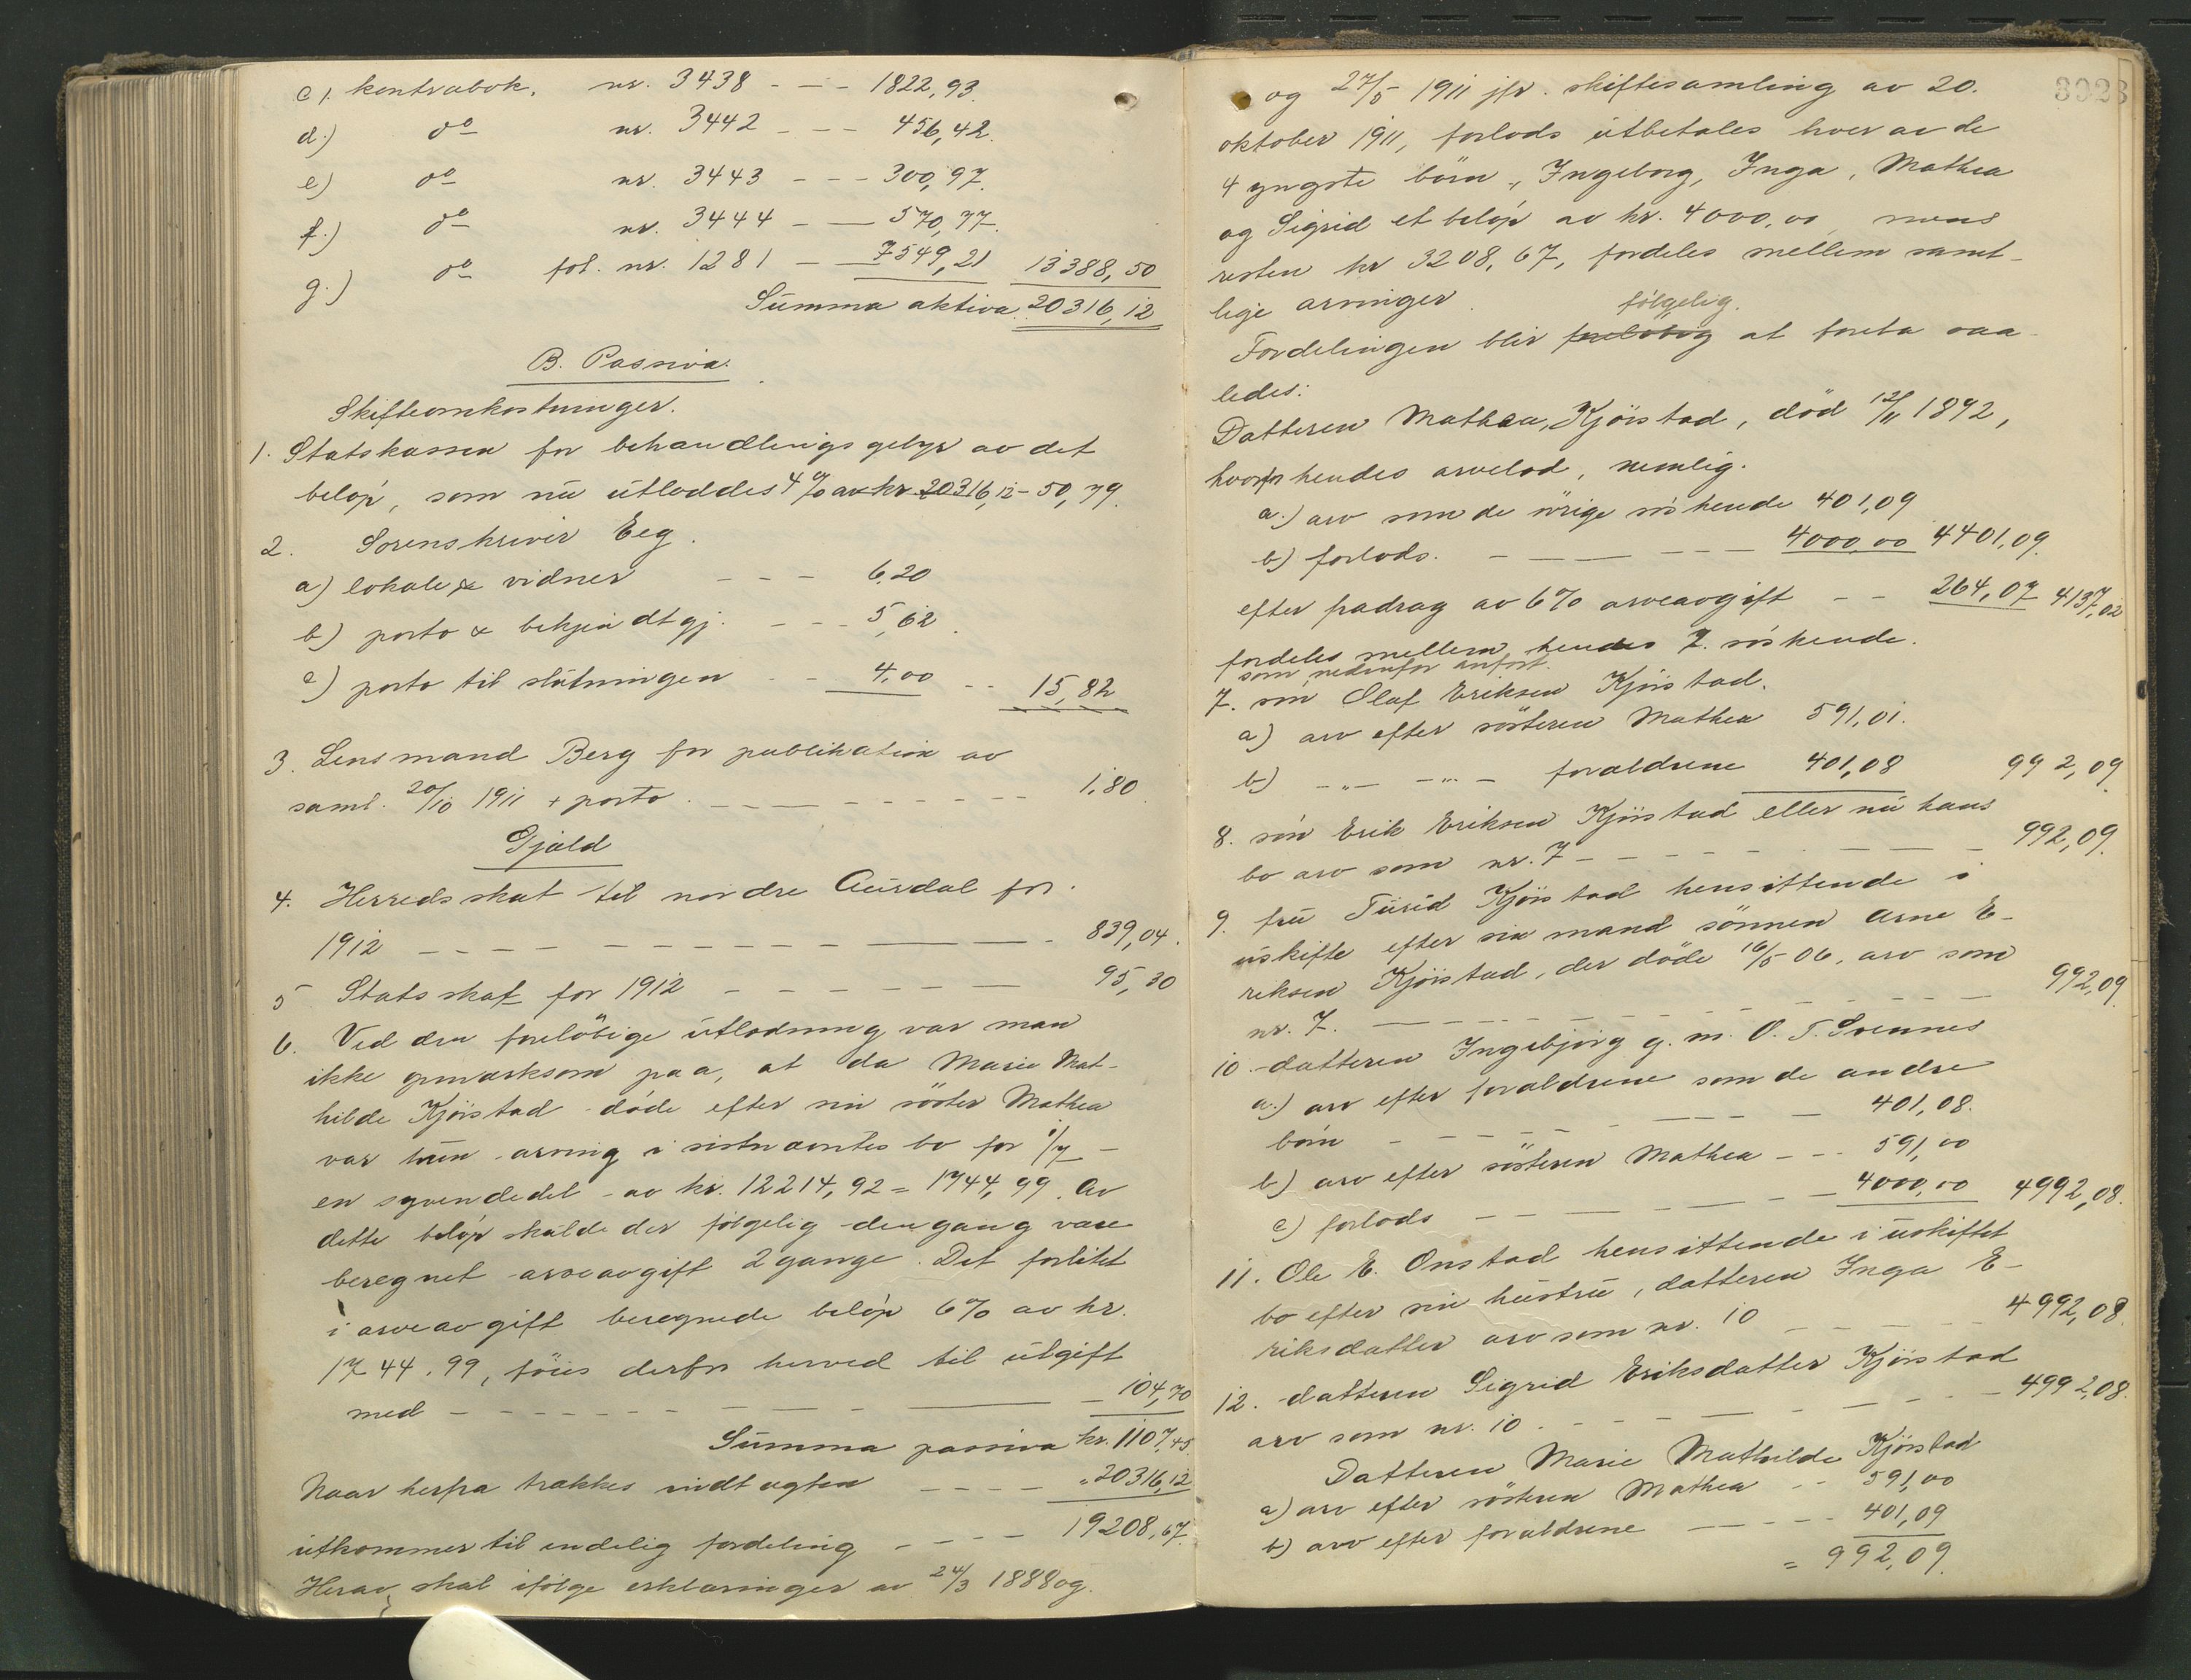 c). kontrabok. nr. 3438 - - - 1822,93.
d.) do nr. 3442 - - - 456,42.
e) do nr. 3443 - - - 300,97.
f.) do nr. 3444 - - 570,77.
g.) do fol. nr. 1281 - 7549,21 13388,50
Summa aktiva 20316,12
B. Passiva.
Skifteomkostninger.
1. Statskassen for behandlingsgebyr av det
beløp, som nu utloddes 4 0/00 av kr 20316,12 - 50,79.
2. Sorenskriver Eeg.
a) lokale & vidner - - - 6,20
b) porto & bekjendtgj. - - - 5,62.
c) porto til slutningen - - 4,00 - - 15,82
3. Lensmand Berg for publikation av
saml. 20/10 1911 + porto. - - - - - - 1,80
Gjæld
4. Herredsskat til nordre Aurdal for
1912 - - - - - - - - - 839,04.
5 Statsskat for 1912 - - - - - - 95,30
6. Ved den foreløbige utlodning var man
ikke opmerksom paa, at da Marie Mat-
hilde Kjørstad døde efter sin søster Mathea
var hun arving i sistnævntes bo for 1/7 -
en syvendedel - av kr. 12214,92 = 1744,99. Av
dette beløp skulde der følgelig dengang være
beregnet arveavgift 2 gange. Det forlitet
i arveavgift beregnede beløp 6% av kr.
1744.99, føies derfor herved til utgift
med - - - - - - - - - 104,70
Summa passiva kr. 1107,45
Naar herfra trækkes indtægten - - - - " 20316,12
utkommer til endelig fordeling - - - - 19208,67.
Herav skal ifølge erklæringer av 24/3 1888 og
3923
og 27/5 1911 jfr. skiftesamling av 20.
oktober 1911, forlods utbetales hver av de
4 yngste børn, Ingeborg, Inga, Mathea
og Sigrid et beløp av kr. 4000,00 mens
resten kr 3208,67, fordeles mellem samt-
lige arvinger.
følgelig.
Fordelingen blir foreløbig at foreta saa-
ledes:
Datteren Mathea, Kjørstad, død 12/11 1892,
hvorfor hendes arvelod, nemlig.
a.) arv som de øvrige søskende 401,09
b) forlods. - - - - - 4000,00 4401,09.
efter fradrag av 6% arveavgift - - 264,07 4137,02
fordeles mellem hendes 7. søskende.
som nedenfor anført.
7. søn Olaf Eriksen Kjørstad.
a) arv efter søsteren Mathea 591,01.
b) - " - - " - forældrene 401,08 992,09.
8. søn Erik Eriksen Kjørstad eller nu hans
bo arv som nr. 7 - - - - - - - 992,09.
9. fru Turid Kjørstad hensittende i
uskifte efter sin mand sønnen Arne E-
riksen Kjørstad, der døde 16/5 06, arv som
nr. 7. - - - - - - - - 992,09.
10. datteren Ingebjørg g. m. O. T. Svennes
a.) arv efter forældrene som de andre
børn - - - - - - - 401,08.
b) arv efter søsteren Mathea - - - 591,00
c) forlods - - - - - - 4000,00 4992,08.
11. Ole E. Onstad hensittende i uskiftet
bo efter sin hustru, datteren Inga E-
riksdatter arv som nr. 10 - - - - - 4992,08.
12. datteren Sigrid Eriksdatter Kjørstad
arv som nr. 10. - - - - - - - 4992,08.
Datteren Marie Mathilde Kjørstad
a) arv efter søsteren Mathea - - 591,00
b) arv efter forældrene - - - - 401,09
= 992,09.